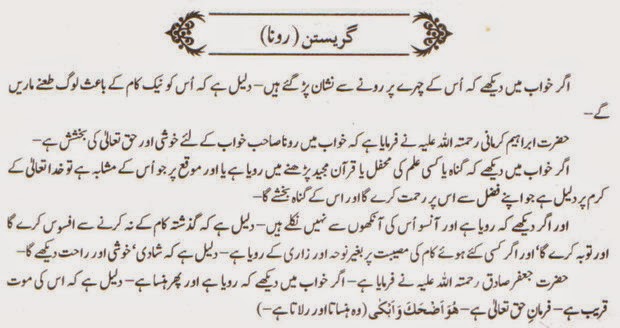 گریستن (رونا)
اگر خواب میں دیکھے کہ اُس کے چہرے پر رونے سے نشان پڑ گئے ہیں – دلیل ہے کہ اُس کو نیک کام کے باعث لوگ طعنے ماریں
گے –
حضرت ابراہیم کرمانی رحمتہ اللہ علیہ نے فرمایا ہے کہ خواب میں رونا صاحب خواب کے لئے خوشی اور حق تعالٰی کی بخشش ہے –
اگر خواب میں دیکھے کہ گناہ یا کسی علم کی محفل یا قرآن مجید پڑھنے میں رویا ہے یا اور موقع پر جو اُس کے مشابہ ہے تو خدا تعالٰی کے
کرم پر دلیل ہے جو اپنے فضل سے اس پر رحمت کرے گا اور اس کے گناہ بخشے گا –
اور اگر دیکھے کہ رویا ہے اور آنسو اُس کی آنکھوں سے نہیں نکلے ہیں – دلیل ہے کہ گذشتہ کام کے نہ کرنے سے افسوس کرے گا
اور توبہ کرے گا' اور اگر کسی کئے ہوئے کام کی مصیبت پر بغیر نوحہ اور زاری کے رویا ہے – دلیل ہے کہ شادی' خوشی اور راحت دیکھے گا –
حضرت جعفر صادق رحمتہ اللہ علیہ نے فرمایا ہے – اگر خواب میں دیکھے کہ رویا ہے اور پھر ہنسا ہے – دلیل ہے کہ اس کی موت
قریب ہے – فرمانِ حق تعالٰی ہے – هُوَ اَضْحَكَ وَ اَبْكٰى (وہ ہنساتا اور رلاتا ہے –)